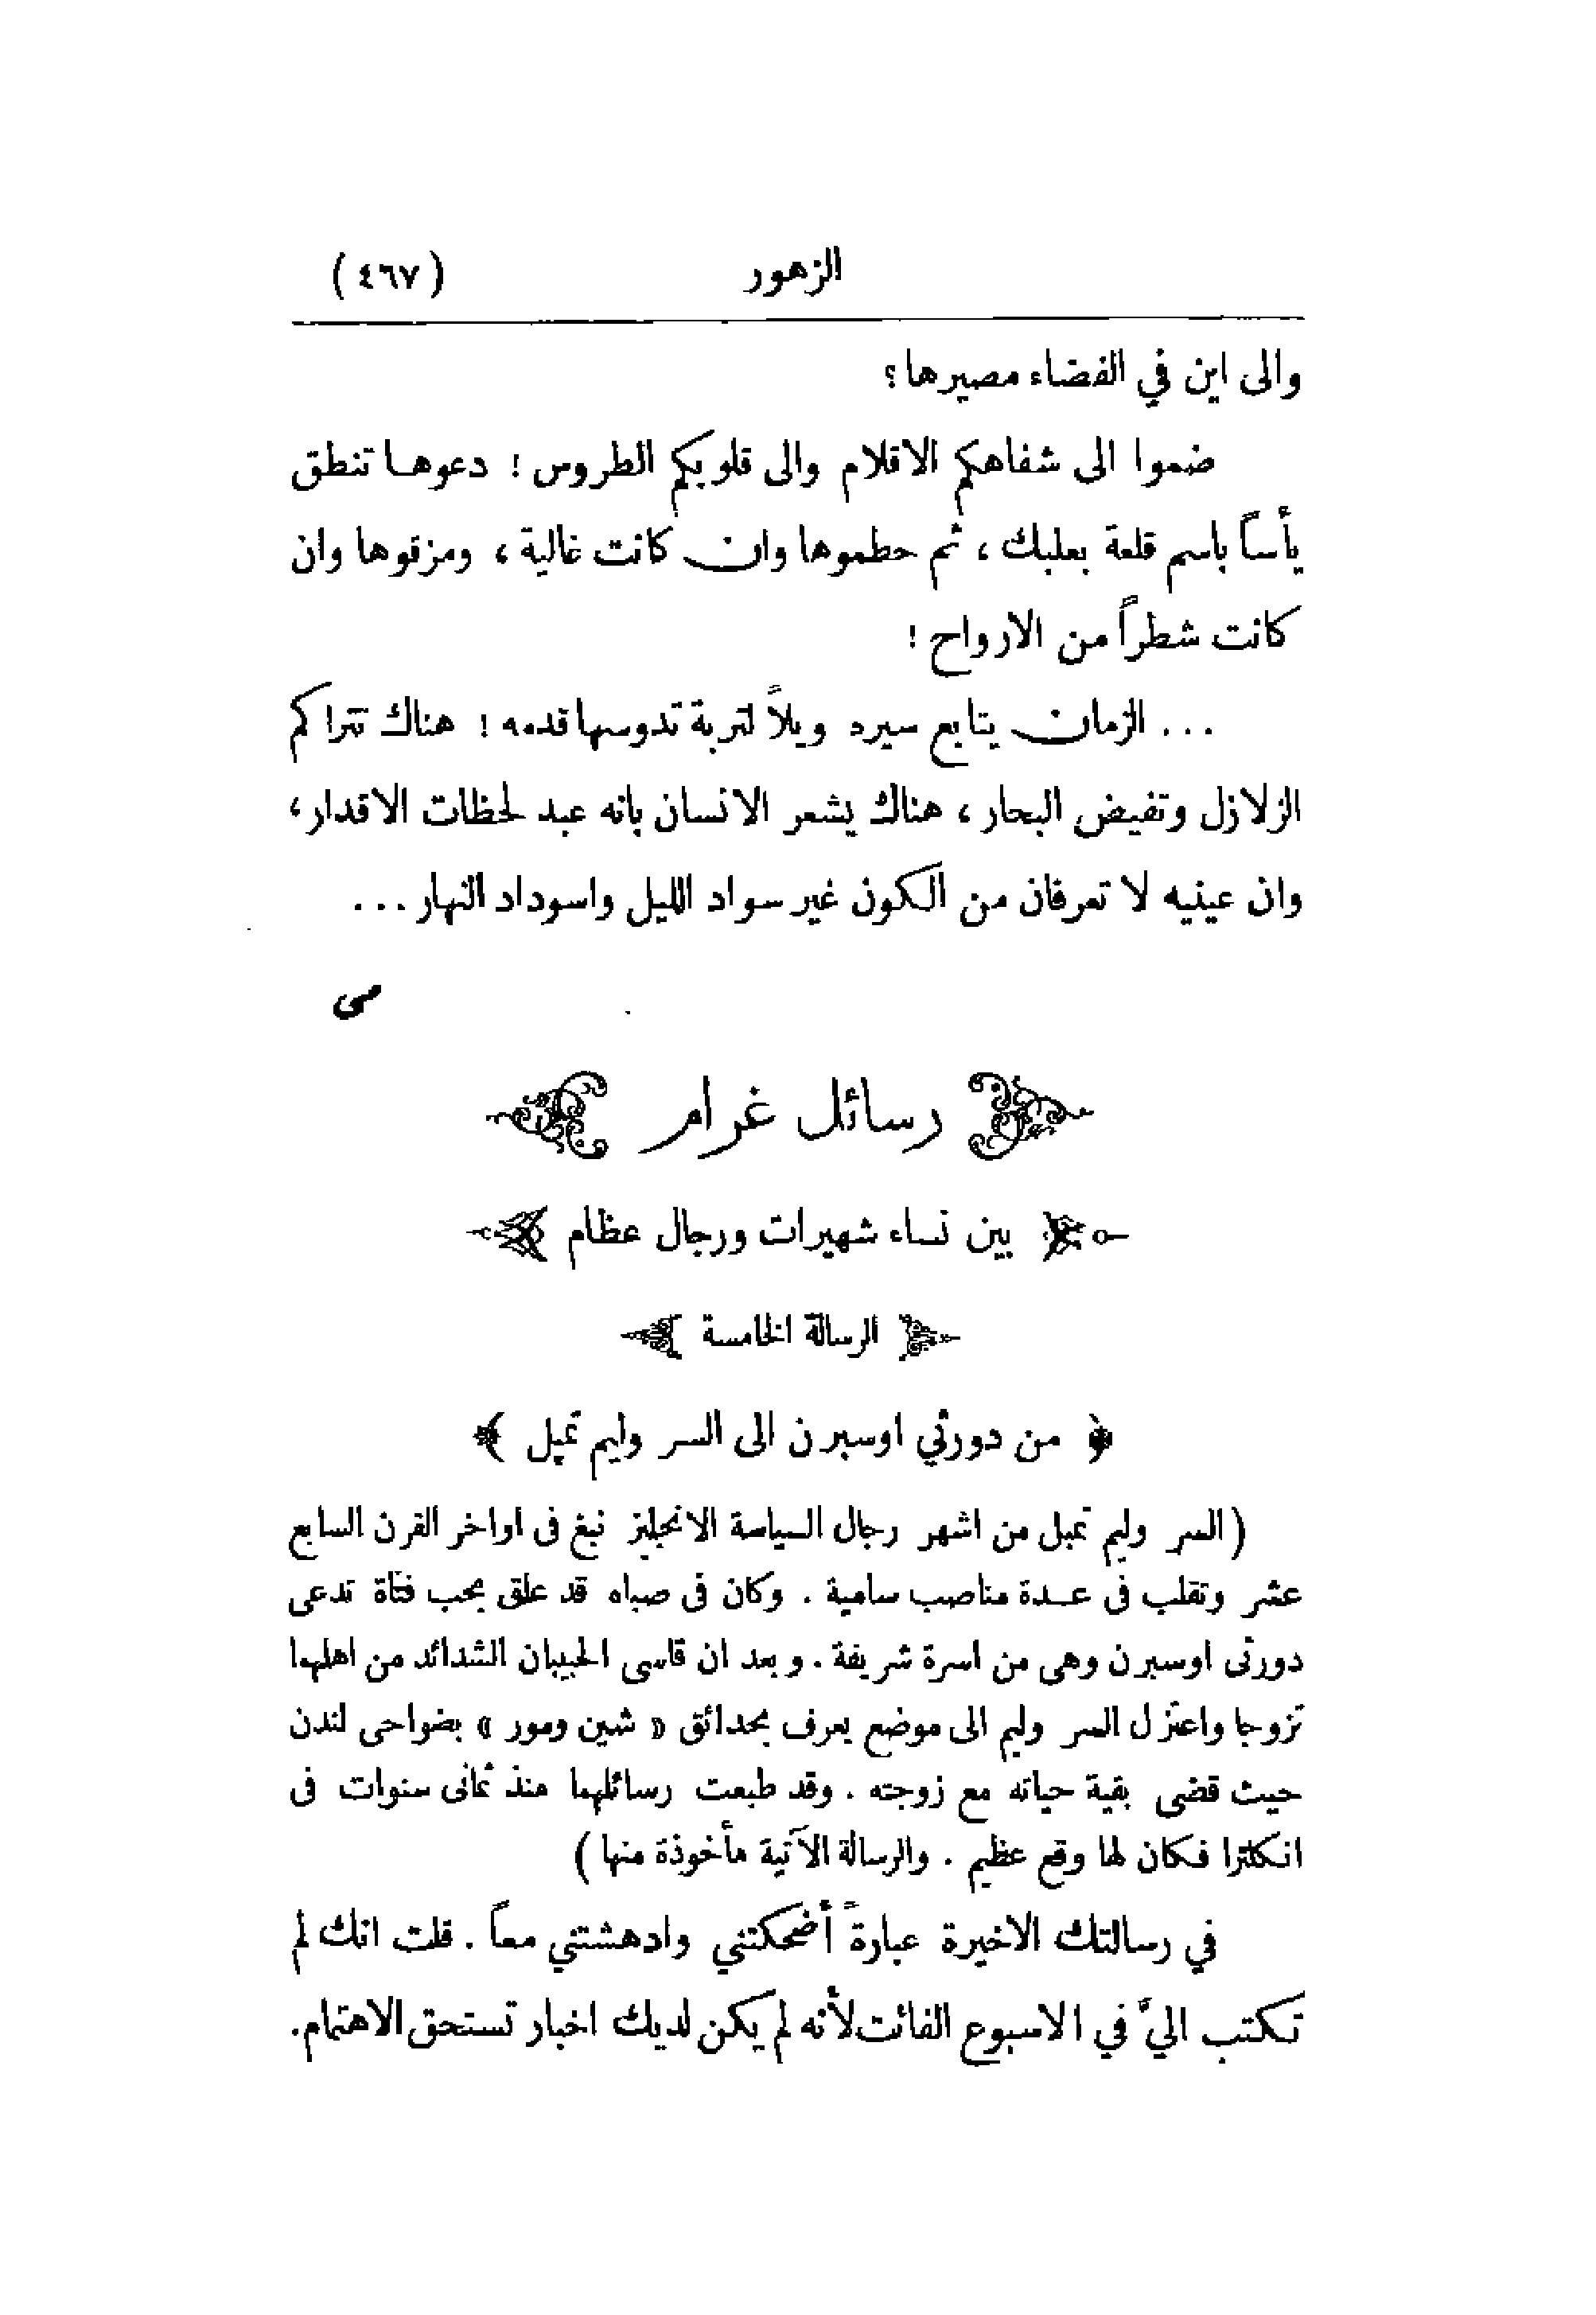 الزهور
(٤٦٧)
والى اين في الفضاء مصيرها؟
ضموا الى شفاهكم الاقلام والى قلوبكم الطروس ! دعوها تنطق
يأساً باسم قلعة بعلبك ، ثم حطموها وان كانت غالية ، ومزقوها وان
كانت شطراً من الارواح !
... الزمان يتابع سيره ويلاً لتربة تدوسها قدمه ! هناك تتراكم
الزلازل وتفيض البحار ، هناك يشعر الانسان بانه عبد لحظات الاقدار ،
وان عينيه لا تعرفان من الكون غير سواد الليل واسوداد النهار ...
مى
رسائل غرام
بين نساء شهيرات ورجال عظام
الرسالة الخامسة
﴿ من دورثي اوسبرن الى السر وليم تمپل ﴾
( السر وليم تمبل من اشهر رجال السياسة الانجليز نبغ فى اواخر القرن السابع
عشر وتقلب فى عدة مناصب سامية . وكان فى صباه قد علق بحب فتاة تدعى
دورثى اوسبرن وهى من اسرة شريفة . وبعد ان قاسى الحبيبان الشدائد من اهلهما
تزوجا واعتزل السر وليم الى موضع يعرف بحدائق « شين ومور » بضواحى لندن
حيث قضى بقية حياته مع زوجته . وقد طبعت رسائلهما منذ ثمانى سنوات فى
انكلترا فكان لها وقع عظيم . والرسالة الآتية مأخوذة منها )
في رسالتك الاخيرة عبارةً أضحكتني وادهشتني معاً . قلت انك لم
تكتب اليَّ في الاسبوع الفائت لأنه لم يكن لديك اخبار تستحق الاهتمام .